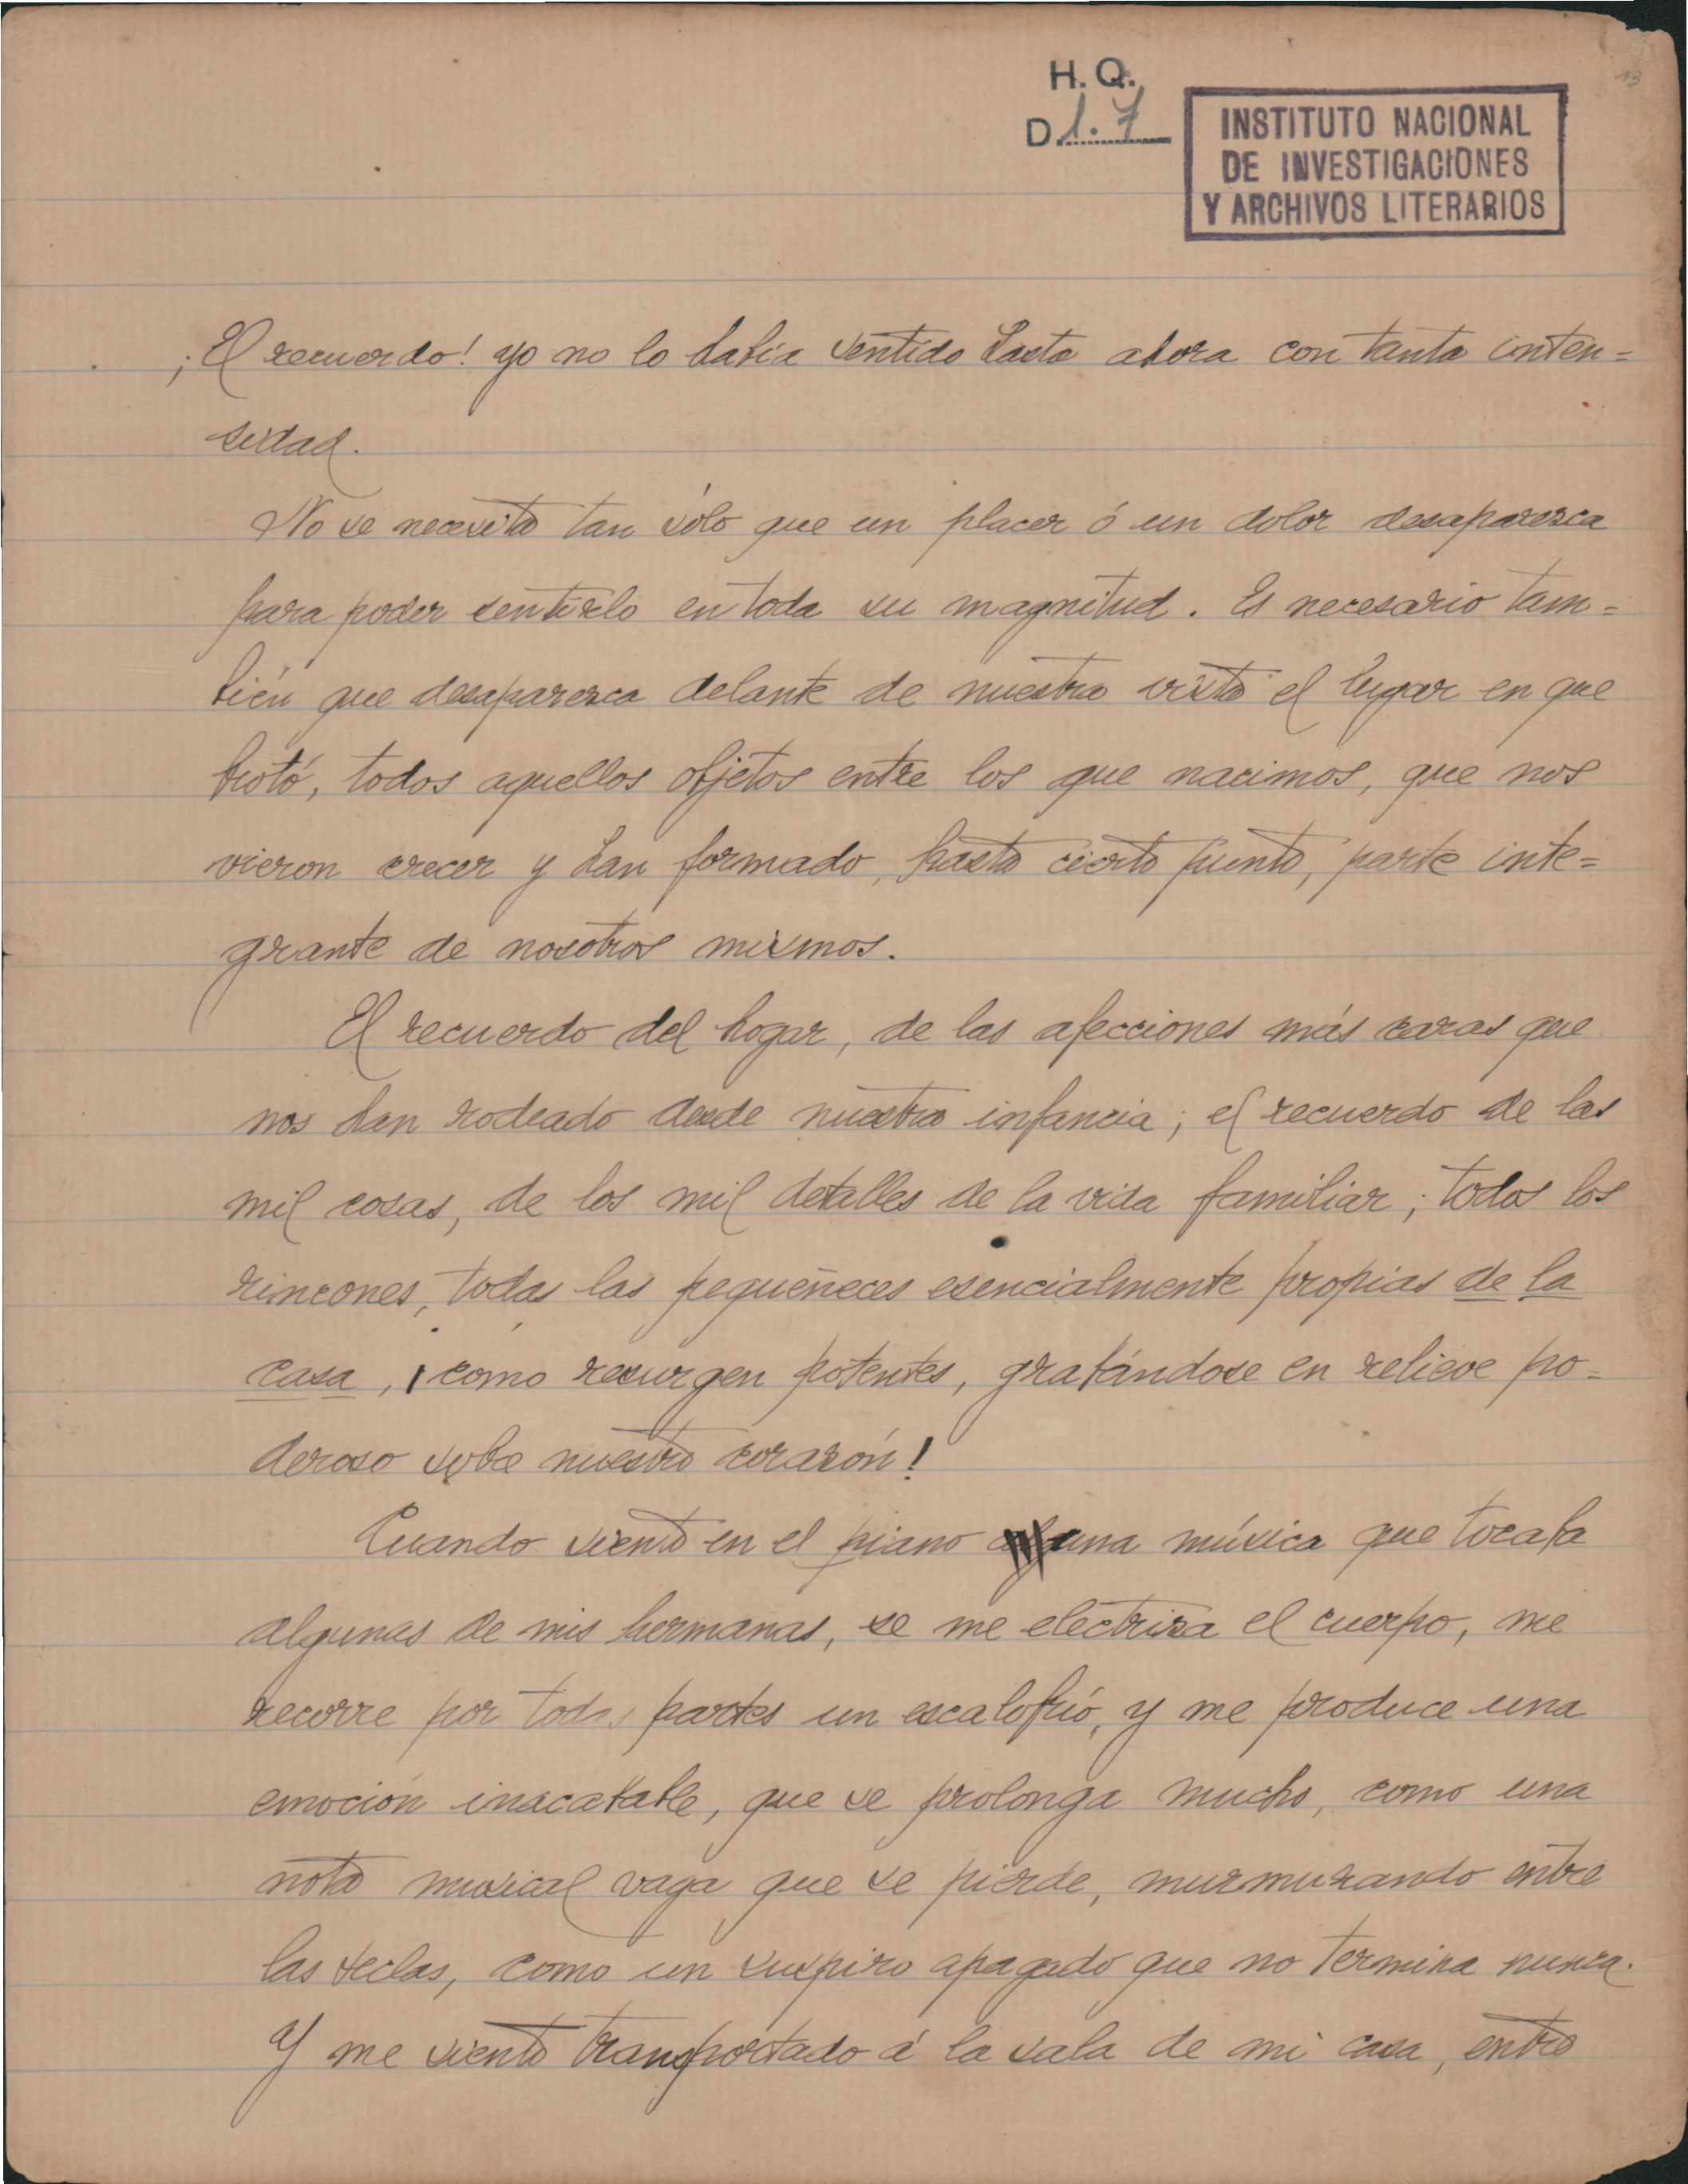 13
H. Q.
D. 1. 7
INSTITUTO NACIONAL
DE INVESTIGACIONES
Y ARCHIVOS LITERARIOS
¡El recuerdo! yo no lo había sentido hasta ahora con tanta inten=
sidad.
No se necesita tan sólo que un placer ó un dolor desaparezca
para poder sentirlo en toda su magnitud. Es necesario tam=
bién que desaparezca delante de nuestra vista el lugar en que
brotó, todos aquellos objetos entre los que nacimos, que nos
vieron crecer y han formado, hasta cierto punto, parte inte=
grante de nosotros mismos.
El recuerdo del hogar, de las afecciones más caras que
nos han rodeado desde nuestra infancia; el recuerdo de las
mil cosas, de los mil detalles de la vida familiar; todos los
rincones, todas las pequeñeces esencialmente propias de la
casa, ¡como resurgen potentes, grabándose en relieve po=
deroso sobre nuestro corazón!
Cuando siento en el piano una música que tocaba
algunas de mis hermanas, se me electriza el cuerpo, me
recorre por todas partes un escalofrió, y me produce una
emoción inacabable, que se prolonga mucho, como una
nota musical vaga que se pierde, murmurando entre
las teclas, como un suspiro apagado que no termina nunca.
Y me siento transportado á la sala de mi casa, entre